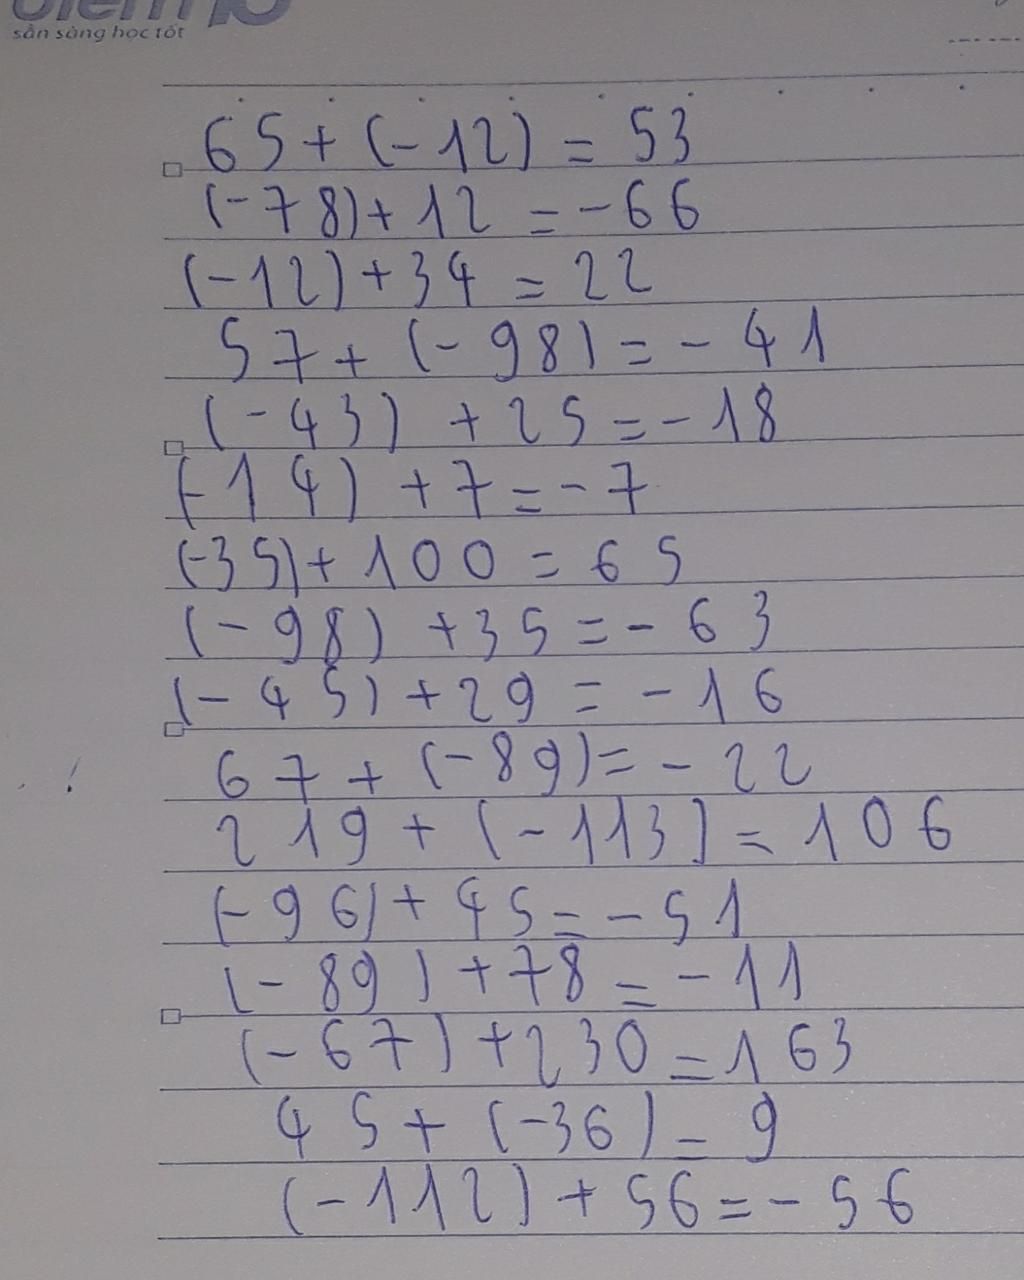 điểm 10
sẵn sàng học tốt
65 + (-12) = 53
(-78) + 12 = -66
(-12) + 34 = 22
57 + (-98) = -41
(-43) + 25 = -18
(-14) + 7 = -7
(-35) + 100 = 65
(-98) + 35 = -63
(-45) + 29 = -16
67 + (-89) = -22
219 + (-113) = 106
(-96) + 45 = -51
(-89) + 78 = -11
(-67) + 230 = 163
45 + (-36) = 9
(-112) + 56 = -56